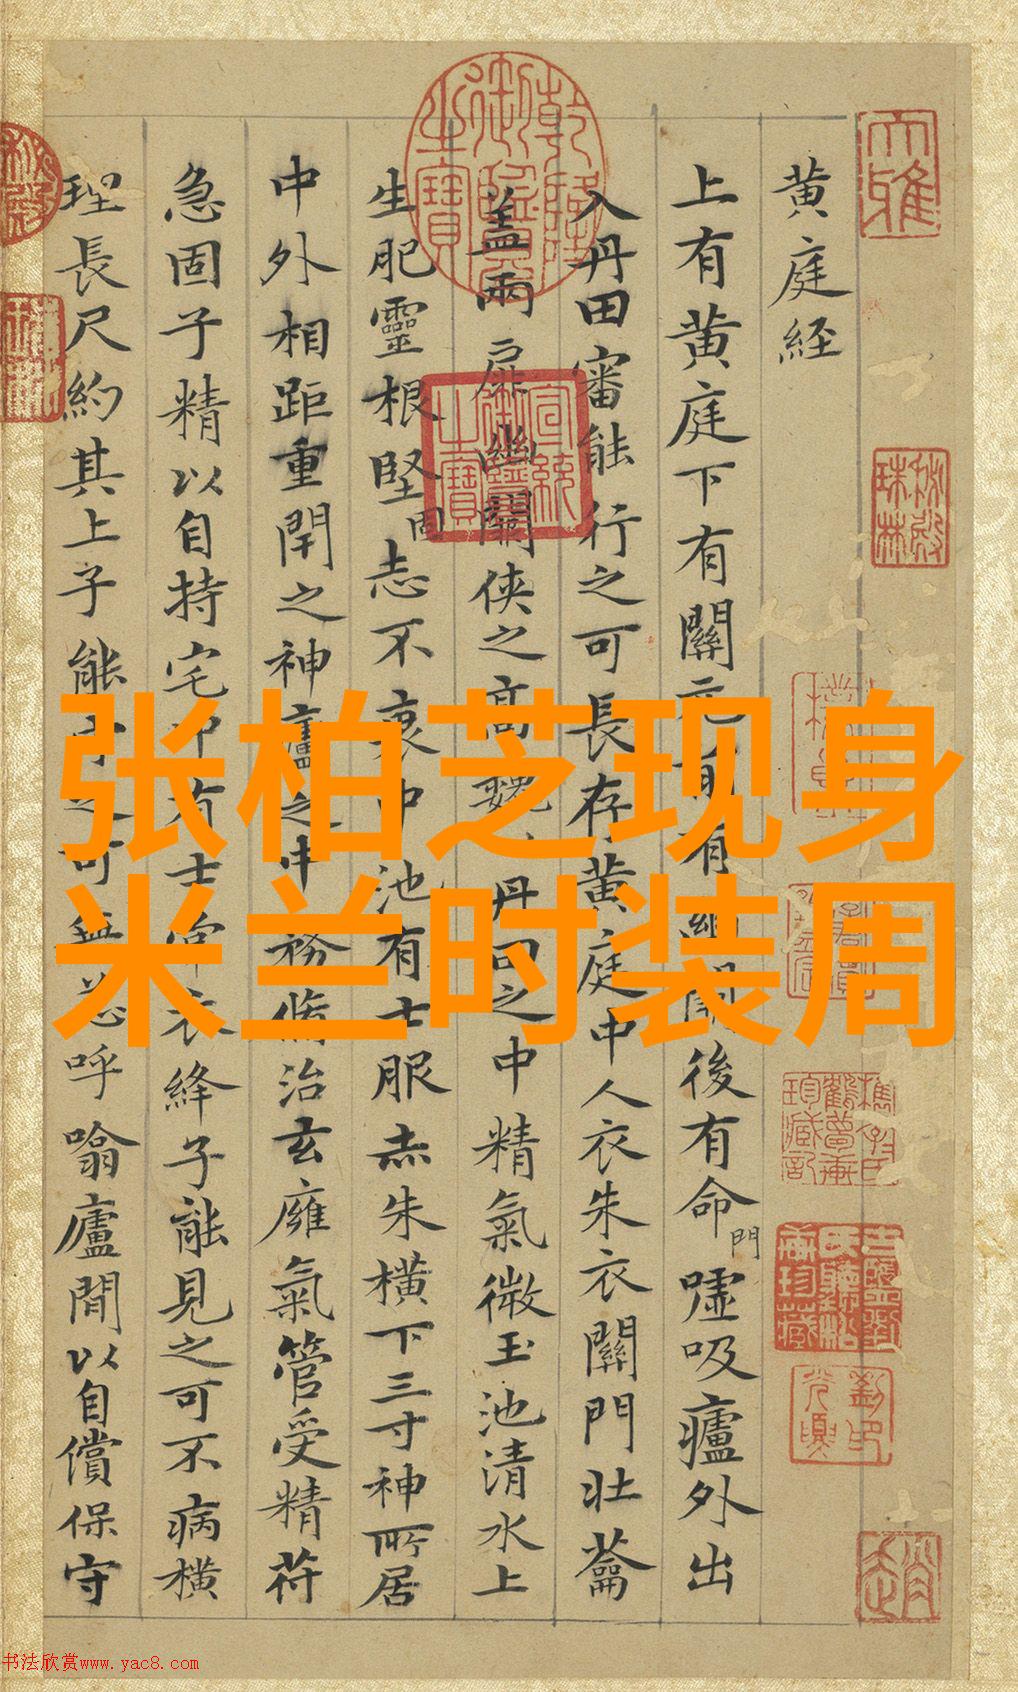 张柏芝现身
米兰时装周
黄庭经
上有黄庭下有關元前有幽闕後有命門嘘吸廬外出
入丹田審能行之可長存黄庭中人衣朱衣關門壯蘥
盖兩扉幽關侠之高魏丹田之中精氣微玉池清水上
生肥靈根堅固志不衰中池有士服赤朱橫下三寸神所居
中外相距重閇之神廬之中務脩治玄廱氣管受精苻
急固子精以自持宅中有士常衣絳子能見之可不病橫
理長尺約其上子能守之可無恙呼噏廬間以自償保守
书法欣赏www.yac8.com